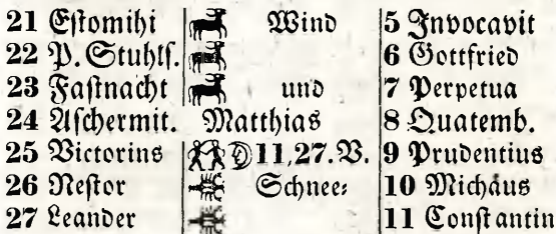 21 Eſtomihi Wind 5 Invocavit
22 P. Stuhlf. 6 Gottfried
23 Faſtnacht und 7 Perpetua
24 Aſchermit. Matthias 8 Quatemb.
25 Victorins 11,27.V. 9 Prudentius
26 Neſtor Schnee⸗ 10 Michäus
27 Leander 11 Conſtantin